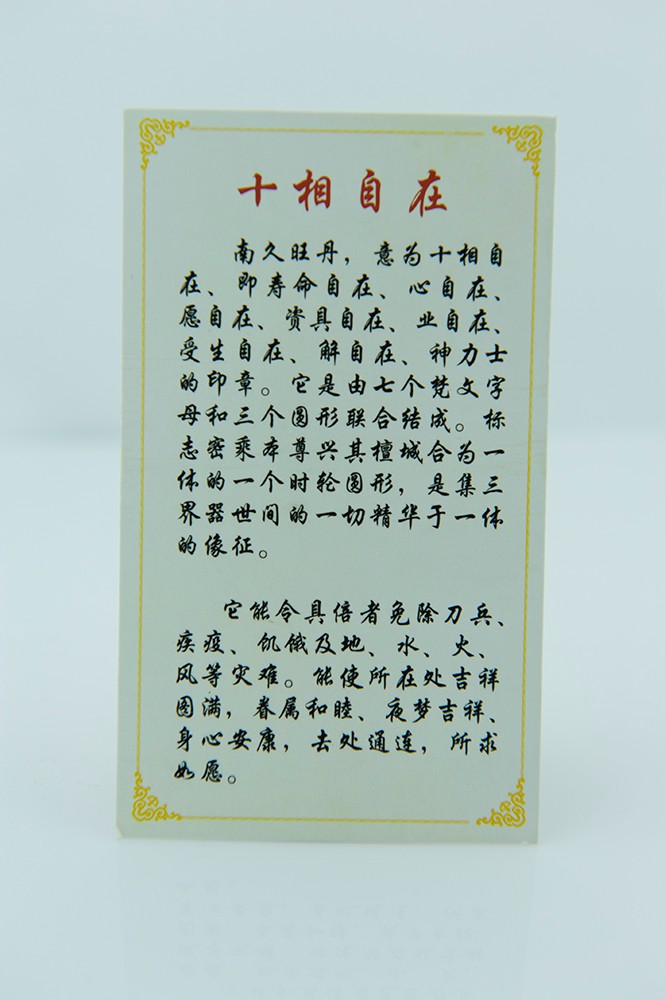 十相自在
南久旺丹，意为十相自
在、即寿命自在、心自在、
愿自在、资具自在、业自在、
受生自在、解自在、神力士
的印章。它是由七个梵文字
母和三个圆形联合结成。标
志密乘本尊兴其檀城合为一
体的一个时轮圆形，是集三
界器世间的一切精华于一体
的像征。
它能令具倍者免除刀兵、
疾疫、饥饿及地、水、火、
风等灾难。能使所在处吉祥
图满，眷属和睦、夜梦吉祥、
身心安康，去处通连，所求
如愿。